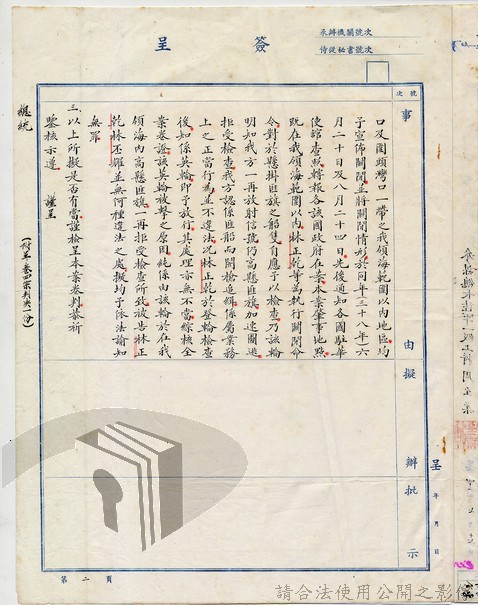 簽呈
承辦機關號次
侍從秘書號次
號次
事由擬辦批示
呈 年 月 日
口及圍頭灣口一帶之我領海範圍以內地區均
予宣佈關閉並將關閉情形於同年(三十八年)六
月二十日及八月二十四日先後通知各國駐華
使館查照轉報各該國政府在案本案肇事地點
既在我領海範圍以內林正乾等為執行關閉命
令對於懸掛匪旗之船隻自應予以檢查乃該輪
明知我方一再放射信號仍高懸匪旗加速圖逃
拒受檢查我方認係匪船而開槍追緝係屬業務
上之正當行為並不違法況林正乾於登輪檢查
後知係英輪即予放行其處理亦無不當綜核全
案卷證該英輪被擊之原因純係由該輪於在我
領海內高懸匪旗一再拒受檢查所致被告林正
乾林丕㸌並無何種違法之處擬均予依法諭知
無罪
三以上所擬是否有當謹檢呈本案卷判恭祈
鑒核示遵 謹呈
總統
(附呈卷四宗判決一份)
第二頁
請合法使用公開之影像